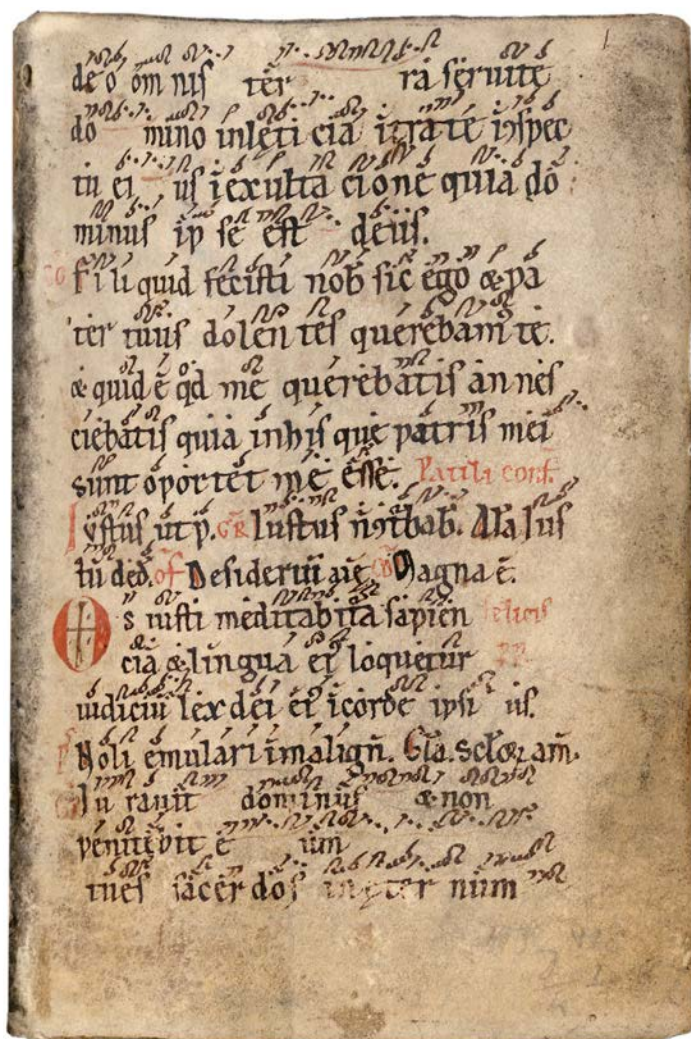 deo om nis ter ra seruite
do mino inleti cia ītrate īnspec
tu ei us īexulta cione quia do
minus ip se est deus.
Fi li quid fecisti nob sic ego & pa
ter tuus dolen tes querebam te.
& quid ē qd me querebatis an nes
ciebatis quia inhis que patris mei
sunt oportet me esse. Pauli conf.
Iustus ut p. GR Iustus Alla Ius
tu ded. of Desideriū aīe Magna ē.
Os iusti meditabit sapien Felicis
cia & lingua ei loquetur
iudiciū lex dei ei īcorde ipsi us.
Noli emulari īmalign. Gla. sclor am.
Iu rauit dominus & non
penitebit e um
tues sacer dos in eter num